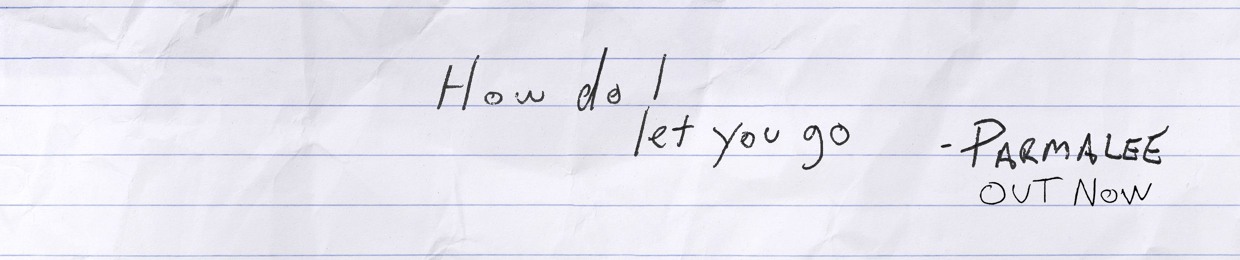 How do I
let you go
-PARMALEE
OUT NOW